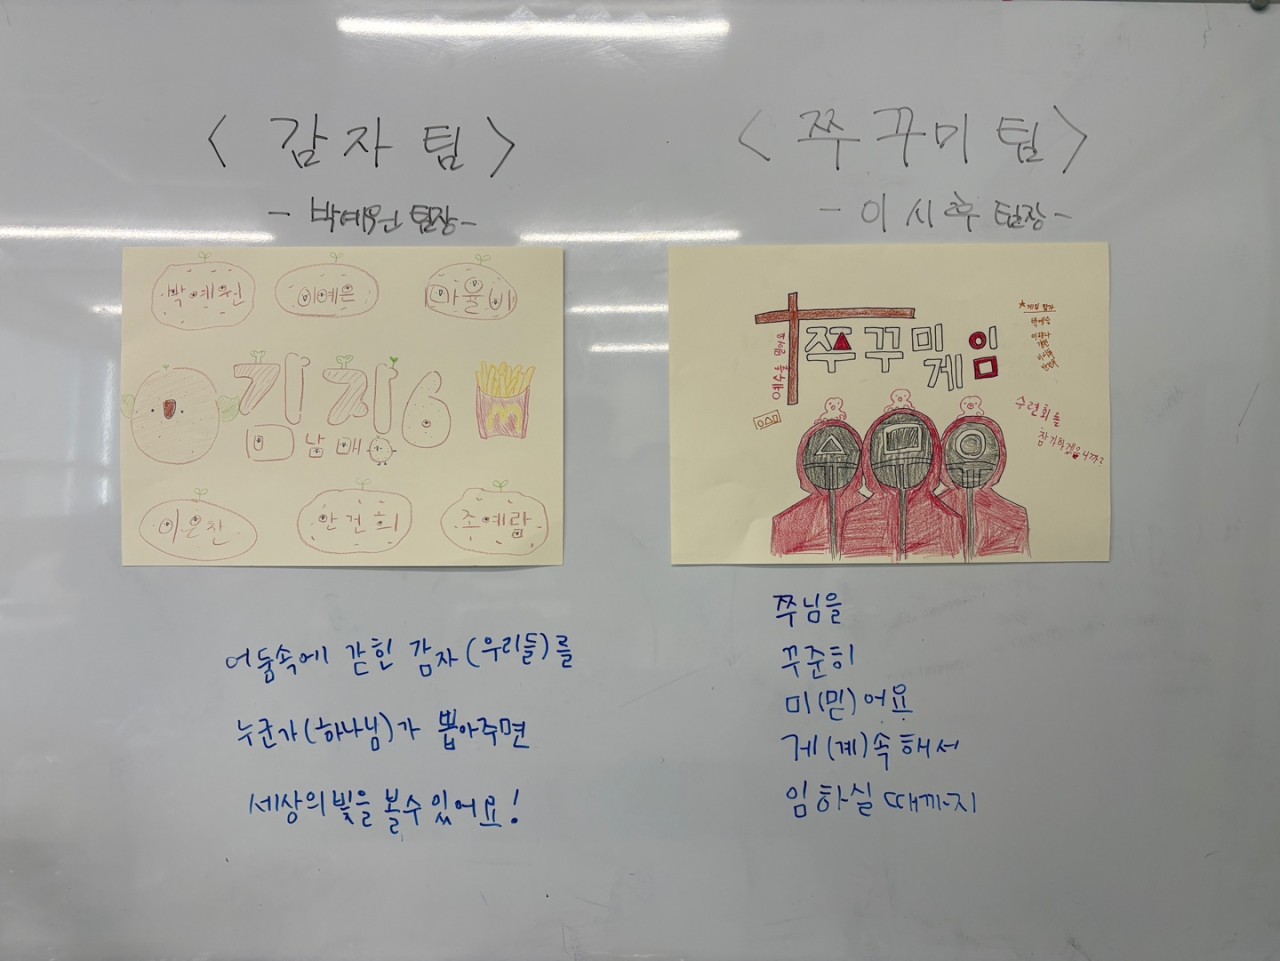 < 감자팀 >
- 박예원 팀장 -
박예원 이예은 마율비
감자6
남매
이은찬 안건희 조예람
어둠속에 갇힌 감자(우리들)를
누군가(하나님)가 뽑아주면
세상의 빛을 볼수 있어요!
< 쭈꾸미 팀 >
- 이시후 팀장 -
예수를 믿어요
쭈꾸미
게임
수련회를
참가하겠습니까?
쭈님을
꾸준히
미(믿)어요
게(계)속해서
임하실 때까지